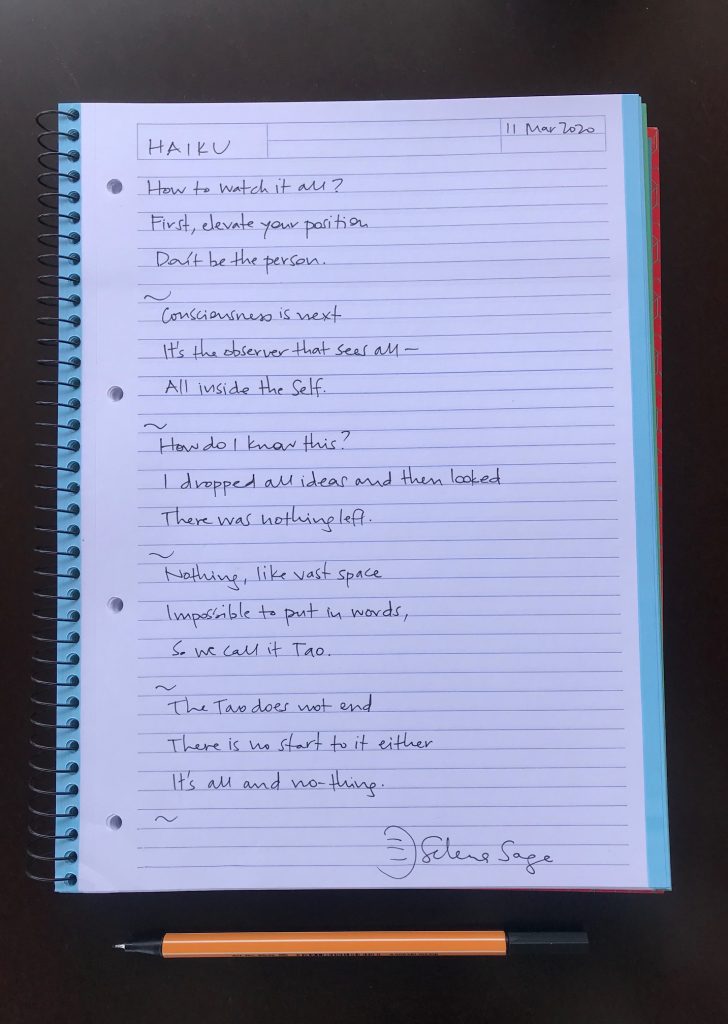 HAIKU
11 Mar 2020
How to watch it all?
First, elevate your position
Don't be the person.
~
Consciousness is next
It's the observer that sees all—
All inside the Self.
~
How do I know this?
I dropped all ideas and then looked
There was nothing left.
~
Nothing, like vast space
Impossible to put in words,
So we call it Tao.
~
The Tao does not end
There is no start to it either
It's all and no-thing.
~
Selena Sage